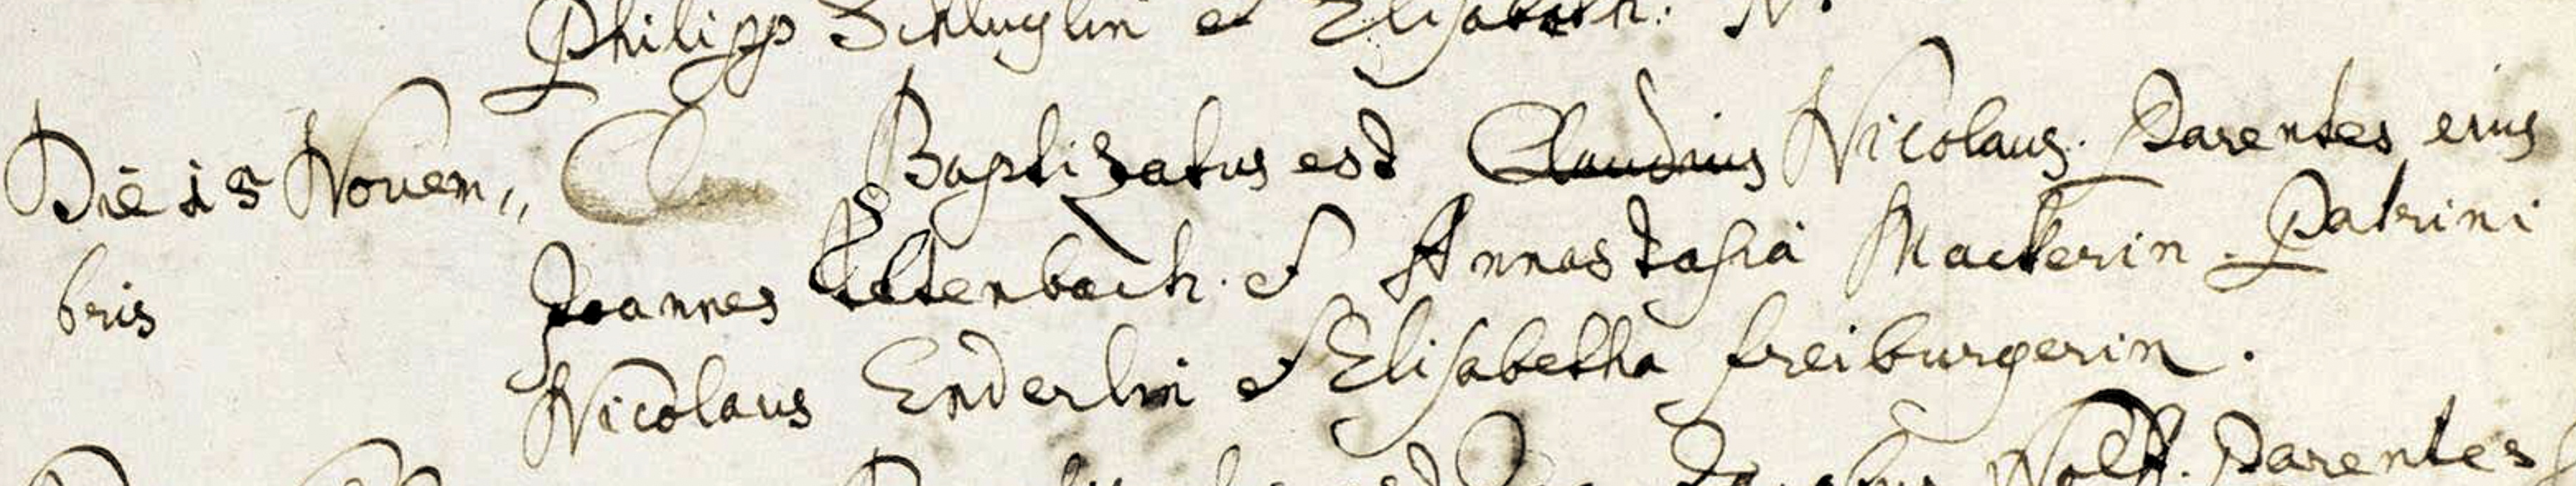 Philipp Schluglin et Elisabeth: N.
Die 15 Nouem„ Baptizatus est Claudius Nicolaus. Parentes eius
bris Joannes Ettenbach. et Annastasia Mackerin. Patrini
Nicolaus Enderlin et Elisabetha freiburgerin.
Jacobus Wolff. Parentes